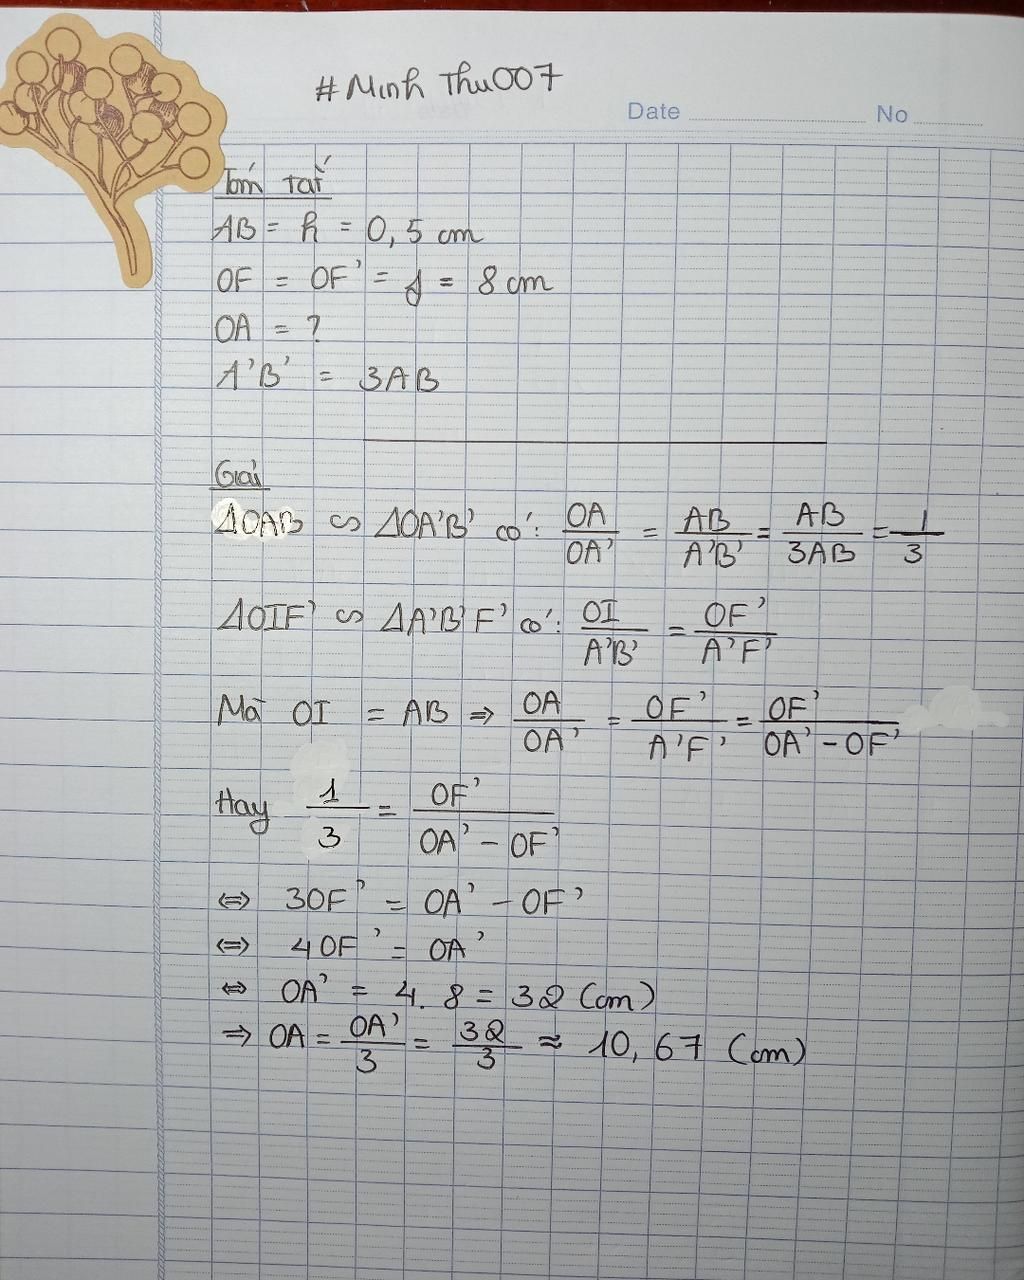 # Minh Thu007
Date No
Tóm tắt
AB = h = 0,5 cm
OF = OF' = f = 8 cm
OA = ?
A'B' = 3AB
Giải
ΔOAB ∽ ΔOA'B' có: OA/OA' = AB/A'B' = AB/3AB = 1/3
ΔOIF' ∽ ΔA'B'F' có: OI/A'B' = OF'/A'F'
Mà OI = AB ⇒ OA/OA' = OF'/A'F' = OF'/OA' - OF'
Hay 1/3 = OF'/OA' - OF'
⇔ 3OF' = OA' - OF'
⇔ 4OF' = OA'
⇔ OA' = 4. 8 = 32 (cm)
⇒ OA = OA'/3 = 32/3 ≈ 10,67 (cm)